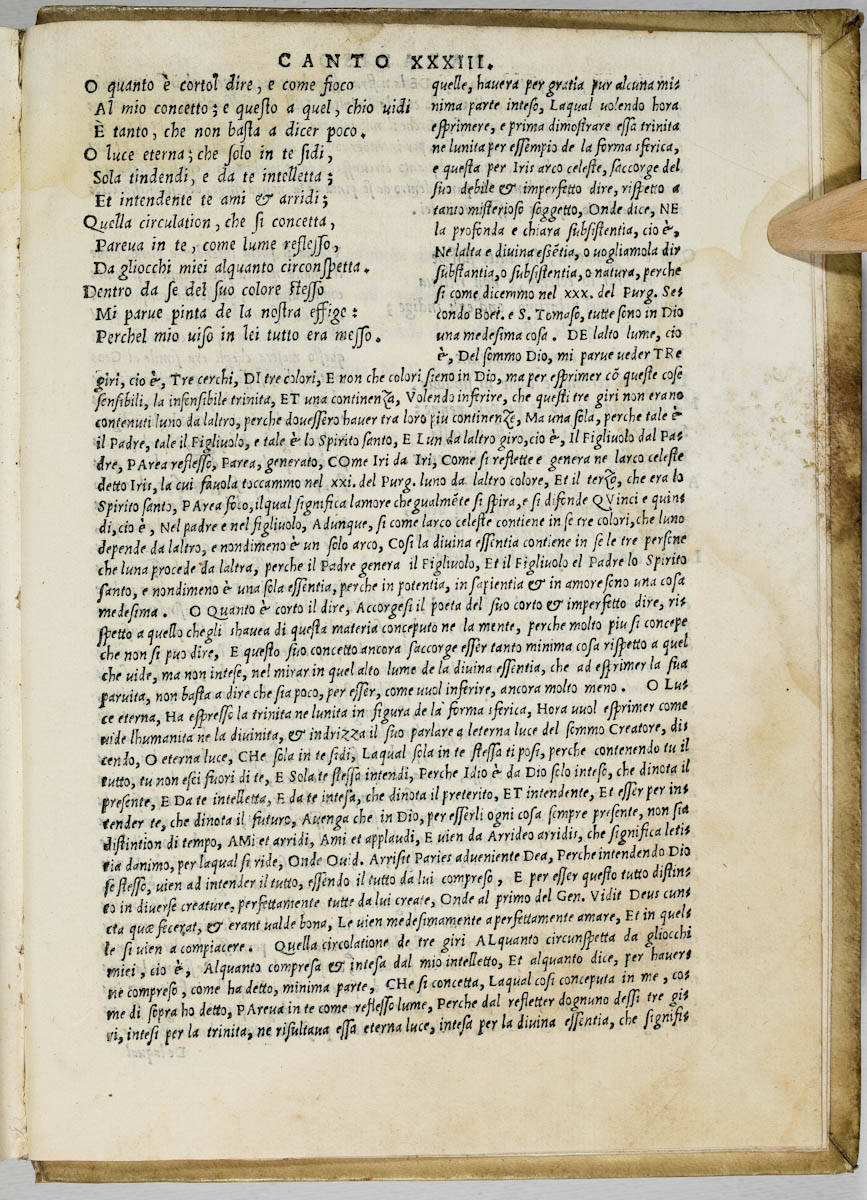 CANTO XXXIII.
O quanto è cortol dire, e come fioco
Al mio concetto; e questo a quel, chio uidi
È tanto, che non basta a dicer poco.
O luce eterna; che solo in te sidi,
Sola tindendi, e da te intelletta;
Et intendente te ami & arridi;
Quella circulation, che si concetta,
Pareua in te, come lume reflesso,
Da gliocchi miei alquanto circonspetta.
Dentro da se del suo colore stesso
Mi parue pinta de la nostra effige:
Perchel mio uiso in lei tutto era messo.
quelle, hauera per gratia pur alcuna mi=
nima parte inteso, Laqual uolendo hora
esprimere, e prima dimostrare essa trinita
ne lunita per essempio de la forma sferica,
e questa per Iris arco celeste, saccorge del
suo debile & imperfetto dire, rispetto a
tanto misterioso soggetto, Onde dice, NE
la profonda e chiara subsistentia, cio è,
Ne lalta e diuina essētia, o uogliamola dir
substantia, o subsistentia, o natura, perche
si come dicemmo nel xxx. del Purg. Se=
condo Boet. e S. Tomaso, tutte sono in Dio
una medesima cosa. DE lalto lume, cio
è, Del sommo Dio, mi parue ueder TRe
giri, cio è, Tre cerchi, DI tre colori, E non che colori sieno in Dio, ma per esprimer cō queste cose
sensibili, la insensibile trinita, ET una continenza, Volendo inferire, che questi tre giri non erano
contenuti luno da laltro, perche douessero hauer tra loro piu continenze, Ma una sola, perche tale è
il Padre, tale il Figliuolo, e tale è lo Spirito santo, E Lun da laltro giro, cio è, Il Figliuolo dal Pa=
dre, PArea reflesso, Parea, generato, COme Iri da Iri, Come si reflette e genera ne larco celeste
detto Iris, la cui fauola toccammo nel xxi. del Purg. luno da laltro colore, Et il terzo, che era lo
Spirito santo, PArea foco, ilqual significa lamore che gualmēte si spira, e si difonde QVinci e quin=
di, cio è, Nel padre e nel figliuolo, Adunque, si come larco celeste contiene in se tre colori, che luno
depende da laltro, e nondimeno è un solo arco, Cosi la diuina essentia contiene in se le tre persone
che luna procede da laltra, perche il Padre genera il Figliuolo, Et il Figliuolo el Padre lo Spirito
santo, e nondimeno è una sola essentia, perche in potentia, in sapientia & in amore sono una cosa
medesima. O Quanto è corto il dire, Accorgesi il poeta del suo corto & imperfetto dire, ri=
spetto a quello chegli shauea di questa materia conceputo ne la mente, perche molto piu si concepe
che non si puo dire, E questo suo concetto ancora saccorge essèr tanto minima cosa rispetto a quel
che uide, ma non intese, nel mirar in quel alto lume de la diuina essentia, che ad esprimer la sua
paruita, non basta a dire che sia poco, per essèr, come uuol inferire, ancora molto meno. O Lu=
ce eterna, Ha espresso la trinita ne lunita in figura de la forma sferica, Hora uuol esprimer come
uide lhumanita ne la diuinita, & indrizza il suo parlare a leterna luce del sommo Creatore, di=
cendo, O eterna luce, CHe sola in te sidi, Laqual sola in te stessa ti posi, perche contenendo tu il
tutto, tu non esci fuori di te, E Sola te stessa intendi, Perche Idio è da Dio solo inteso, che dinota il
presente, E DA te intelletta, E da te intesa, che dinota il preterito, ET intendente, Et essèr per in=
tender te, che dinota il futuro, Auenga che in Dio, per esserli ogni cosa sempre presente, non sia
distintion di tempo, AMi et arridi, Ami et applaudi, E uien da Arrideo arridis, che significa leti=
tia danimo, per laqual si ride, Onde Ouid. Arrisit Paries adueniente Dea, Perche intendendo Dio
se stesso, uien ad intender il tutto, essendo il tutto da lui compreso, E per esser questo tutto distin=
to in diuerse creature, perfettamente tutte da lui create, Onde al primo del Gen. Vidit Deus cun=
cta quæ fecerat, & erant ualde bona, Le uien medesimamente a perfettamente amare, Et in quel=
le si uien a compiacere. Quella circolatione de tre giri ALquanto circunspetta da gliocchi
miei, cio è, Alquanto compresa & intesa dal mio intelletto, Et alquanto dice, per hauer=
ne compreso, come ha detto, minima parte, CHe si concetta, Laqual cosi conceputa in me, co=
me di sopra ho detto, PAreua in te come reflesso lume, Perche dal refletter dognuno dessi tre gi=
ri, intesi per la trinita, ne risultaua essa eterna luce, intesa per la diuina essentia, che signifi=